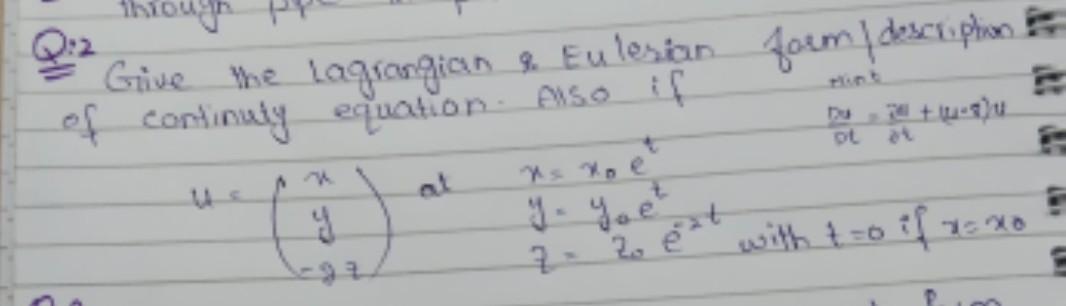 through
Q:2
Give the Lagrangian & Eulerian form/description
of continuty equation. Also if
Hint
Du/Dt = ∂u/∂t + (u·∇)u
u = ( x y -2z ) at x = x₀ e^t
y = y₀ e^t
z = z₀ e^-2t with t=0 if x=x₀